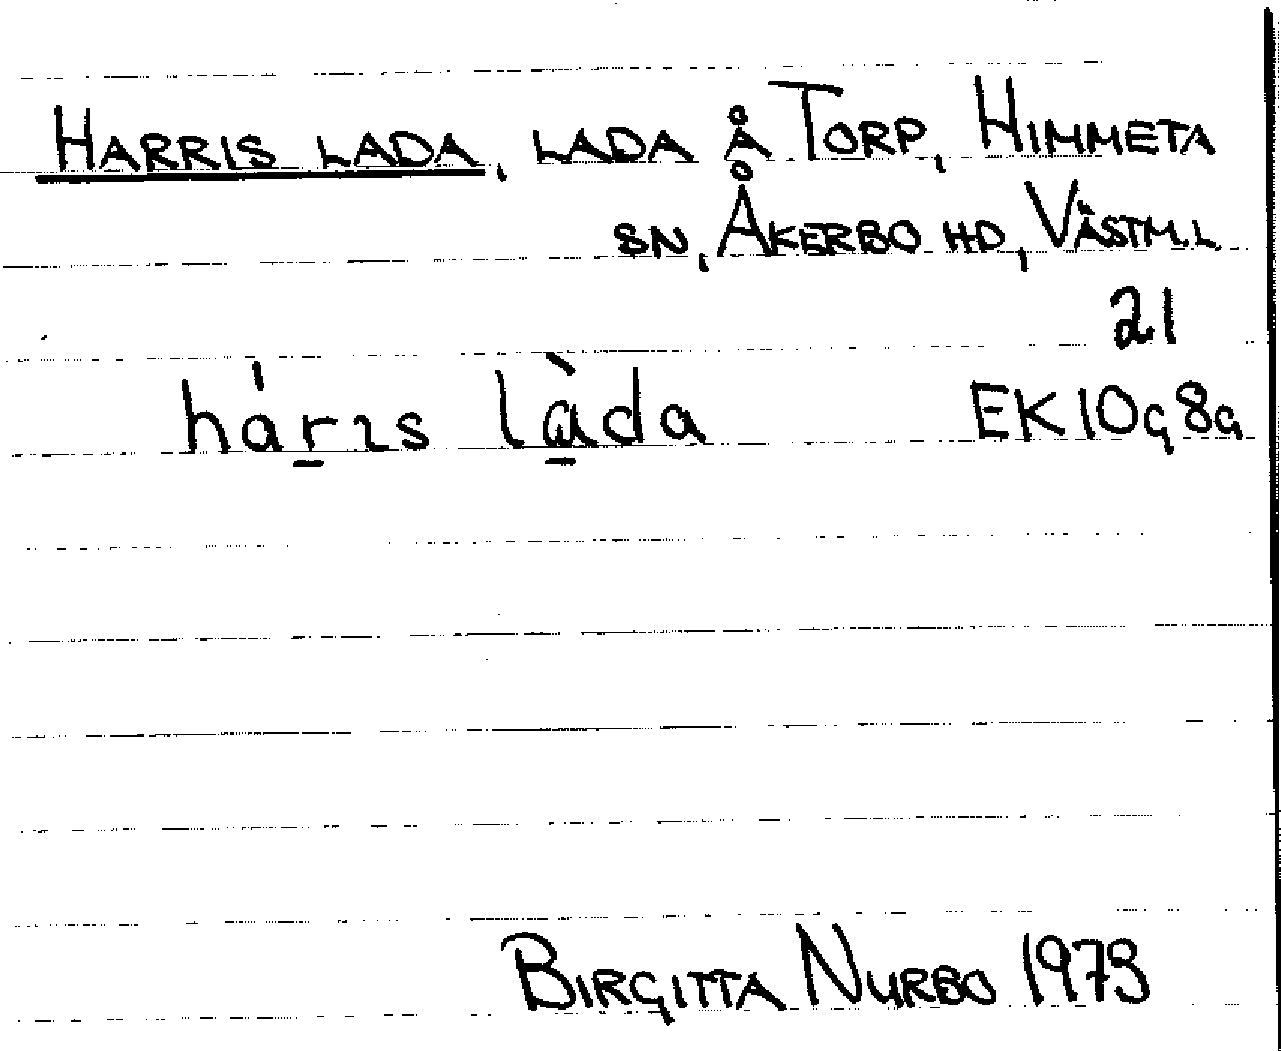 HARRIS LADA, LADA Å TORP, HIMMETA
SN, ÅKERBO HD, VÄSTM.L
21
hárɪs làda EK10G8G
BIRGITTA NURBO 1973